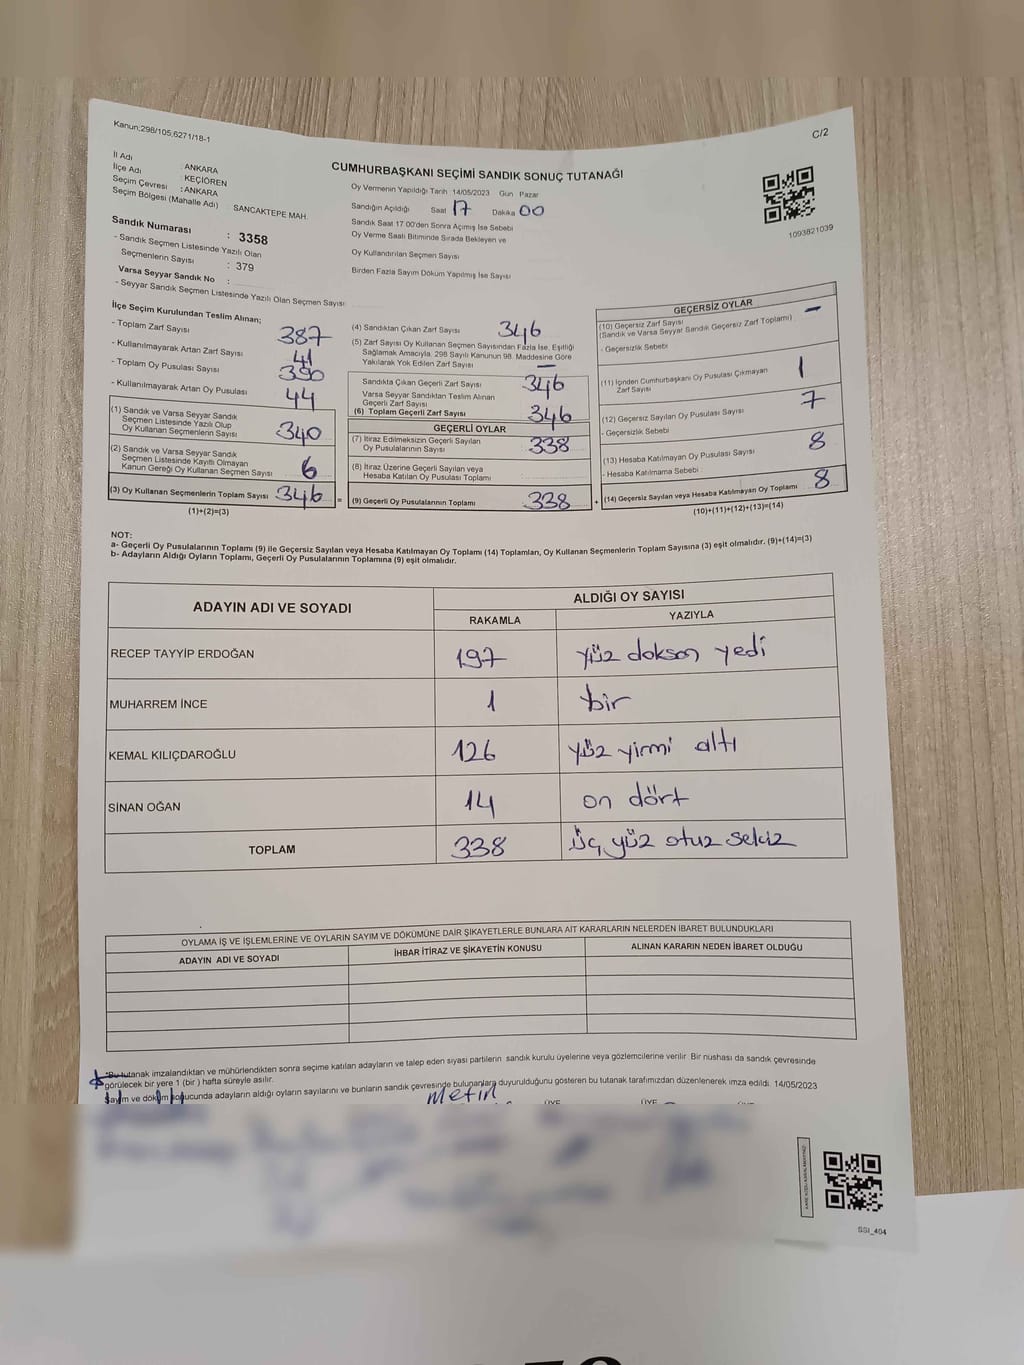 Kanun;298/105,6271/18-1
C/2
İl Adı : ANKARA
İlçe Adı : KEÇİÖREN
Seçim Çevresi : ANKARA
Seçim Bölgesi (Mahalle Adı) : SANCAKTEPE MAH.
CUMHURBAŞKANI SEÇİMİ SANDIK SONUÇ TUTANAĞI
Oy Vermenin Yapıldığı Tarih 14/05/2023 Gün Pazar
Sandığın Açıldığı Saat 17 Dakika 00
Sandık Saat 17:00'den Sonra Açımış İse Sebebi
Oy Verme Saati Bitiminde Sırada Bekleyen ve
Oy Kullandırılan Seçmen Sayısı
Birden Fazla Sayım Döküm Yapılmış İse Sayısı
1093821039
Sandık Numarası : 3358
- Sandık Seçmen Listesinde Yazılı Olan
Seçmenlerin Sayısı : 379
Varsa Seyyar Sandık No :
- Seyyar Sandık Seçmen Listesinde Yazılı Olan Seçmen Sayısı:
İlçe Seçim Kurulundan Teslim Alınan;
- Toplam Zarf Sayısı 387
- Kullanılmayarak Artan Zarf Sayısı 41
- Toplam Oy Pusulası Sayısı 390
- Kullanılmayarak Artan Oy Pusulası 44
(1) Sandık ve Varsa Seyyar Sandık
Seçmen Listesinde Yazılı Olup
Oy Kullanan Seçmenlerin Sayısı 340
(2) Sandık ve Varsa Seyyar Sandık
Seçmen Listesinde Kayıtlı Olmayan
Kanun Gereği Oy Kullanan Seçmen Sayısı 6
(3) Oy Kullanan Seçmenlerin Toplam Sayısı 346 =
(1)+(2)=(3)
(4) Sandıktan Çıkan Zarf Sayısı 346
(5) Zarf Sayısı Oy Kullanan Seçmen Sayısından Fazla İse, Eşitliği
Sağlamak Amacıyla, 298 Sayılı Kanunun 98. Maddesine Göre
Yakılarak Yok Edilen Zarf Sayısı —
Sandıkta Çıkan Geçerli Zarf Sayısı 346
Varsa Seyyar Sandıktan Teslim Alınan
Geçerli Zarf Sayısı
(6) Toplam Geçerli Zarf Sayısı 346
GEÇERLİ OYLAR
(7) İtiraz Edilmeksizin Geçerli Sayılan
Oy Pusulasının Sayısı 338
(8) İtiraz Üzerine Geçerli Sayılan veya
Hesaba Katılan Oy Pusulası Toplamı
(9) Geçerli Oy Pusulalarının Toplamı 338 +
GEÇERSİZ OYLAR
(10) Geçersiz Zarf Sayısı —
(Sandık ve Varsa Seyyar Sandık Geçersiz Zarf Toplamı)
- Geçersizlik Sebebi
(11) İçinden Cumhurbaşkanı Oy Pusulası Çıkmayan
Zarf Sayısı 1
(12) Geçersiz Sayılan Oy Pusulası Sayısı 7
- Geçersizlik Sebebi
(13) Hesaba Katılmayan Oy Pusulası Sayısı 8
- Hesaba Katılmama Sebebi :
(14) Geçersiz Sayılan veya Hesaba Katılmayan Oy Toplamı 8
(10)+(11)+(12)+(13)=(14)
NOT:
a- Geçerli Oy Pusulalarının Toplamı (9) ile Geçersiz Sayılan veya Hesaba Katılmayan Oy Toplamı (14) Toplamları, Oy Kullanan Seçmenlerin Toplam Sayısına (3) eşit olmalıdır. (9)+(14)=(3)
b- Adayların Aldığı Oyların Toplamı, Geçerli Oy Pusulalarının Toplamına (9) eşit olmalıdır.
ADAYIN ADI VE SOYADI
ALDIĞI OY SAYISI
RAKAMLA YAZIYLA
RECEP TAYYİP ERDOĞAN 197 yüz dokson yedi
MUHARREM İNCE 1 bir
KEMAL KILIÇDAROĞLU 126 yüz yirmi altı
SİNAN OĞAN 14 on dört
TOPLAM 338 üç yüz otuz sekiz
OYLAMA İŞ VE İŞLEMLERİNE VE OYLARIN SAYIM VE DÖKÜMÜNE DAİR ŞİKAYETLERLE BUNLARA AİT KARARLARIN NELERDEN İBARET BULUNDUKLARI
ADAYIN ADI VE SOYADI İHBAR İTİRAZ VE ŞİKAYETİN KONUSU ALINAN KARARIN NEDEN İBARET OLDUĞU
*Bu tutanak imzalandıktan ve mühürlendikten sonra seçime katılan adayların ve talep eden siyasi partilerin sandık kurulu üyelerine veya gözlemcilerine verilir Bir nüshası da sandık çevresinde
görülecek bir yere 1 (bir ) hafta süreyle asılır.
Sayım ve döküm sonucunda adayların aldığı oyların sayılarını ve bunların sandık çevresinde bulunanlara duyurulduğunu gösteren bu tutanak tarafımızdan düzenlenerek imza edildi. 14/05/2023
Metin
ÜYE ÜYE
SSI_404